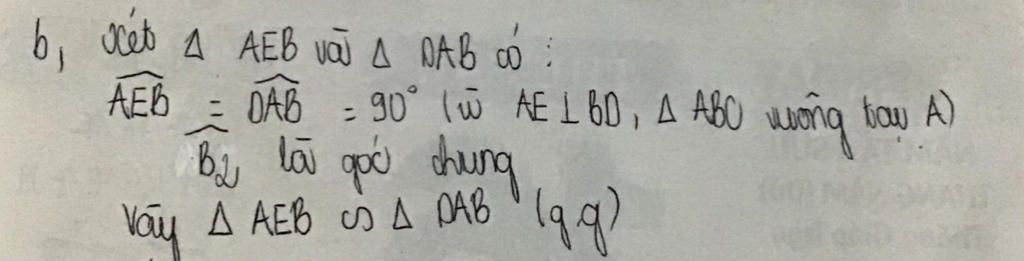 b, Xét Δ AEB và Δ DAB có :
$\widehat{AEB}$ = $\widehat{DAB}$ = 90° (vì AE ⊥ BD, Δ ABC vuông tại A)
$\widehat{B_2}$ là góc chung
Vậy Δ AEB ∽ Δ DAB (g.g)